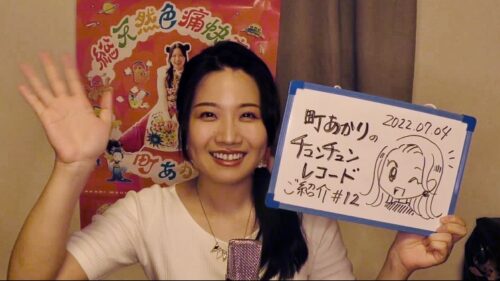 総天然色痛快
町あかり
2022.07.04
町あかりの
チュンチュン
レコード
ご紹介 #12